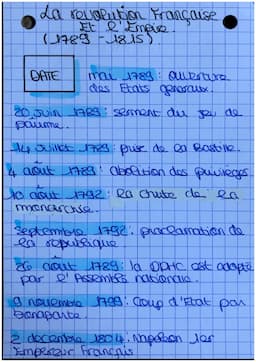 La révolution Française
Et l'Empire.
(1789 - 1815).
DATE
mai 1789 : ouverture
des Etats généraux.
20 juin 1789 : serment du jeu de
paume.
14 juillet 1789 : prise de la Bastille.
4 août 1789 : abolition des privilèges
10 août 1792 : la chute de la
monarchie.
septembre 1792 : proclamation de
la république
26 août 1789 : la DDHC est adopté
par l'Assemblés nationale.
9 novembre 1799 : Coup d'Etat par
Bonaparte.
2 décembre 1804 : Napoléon 1er
Empereur Français